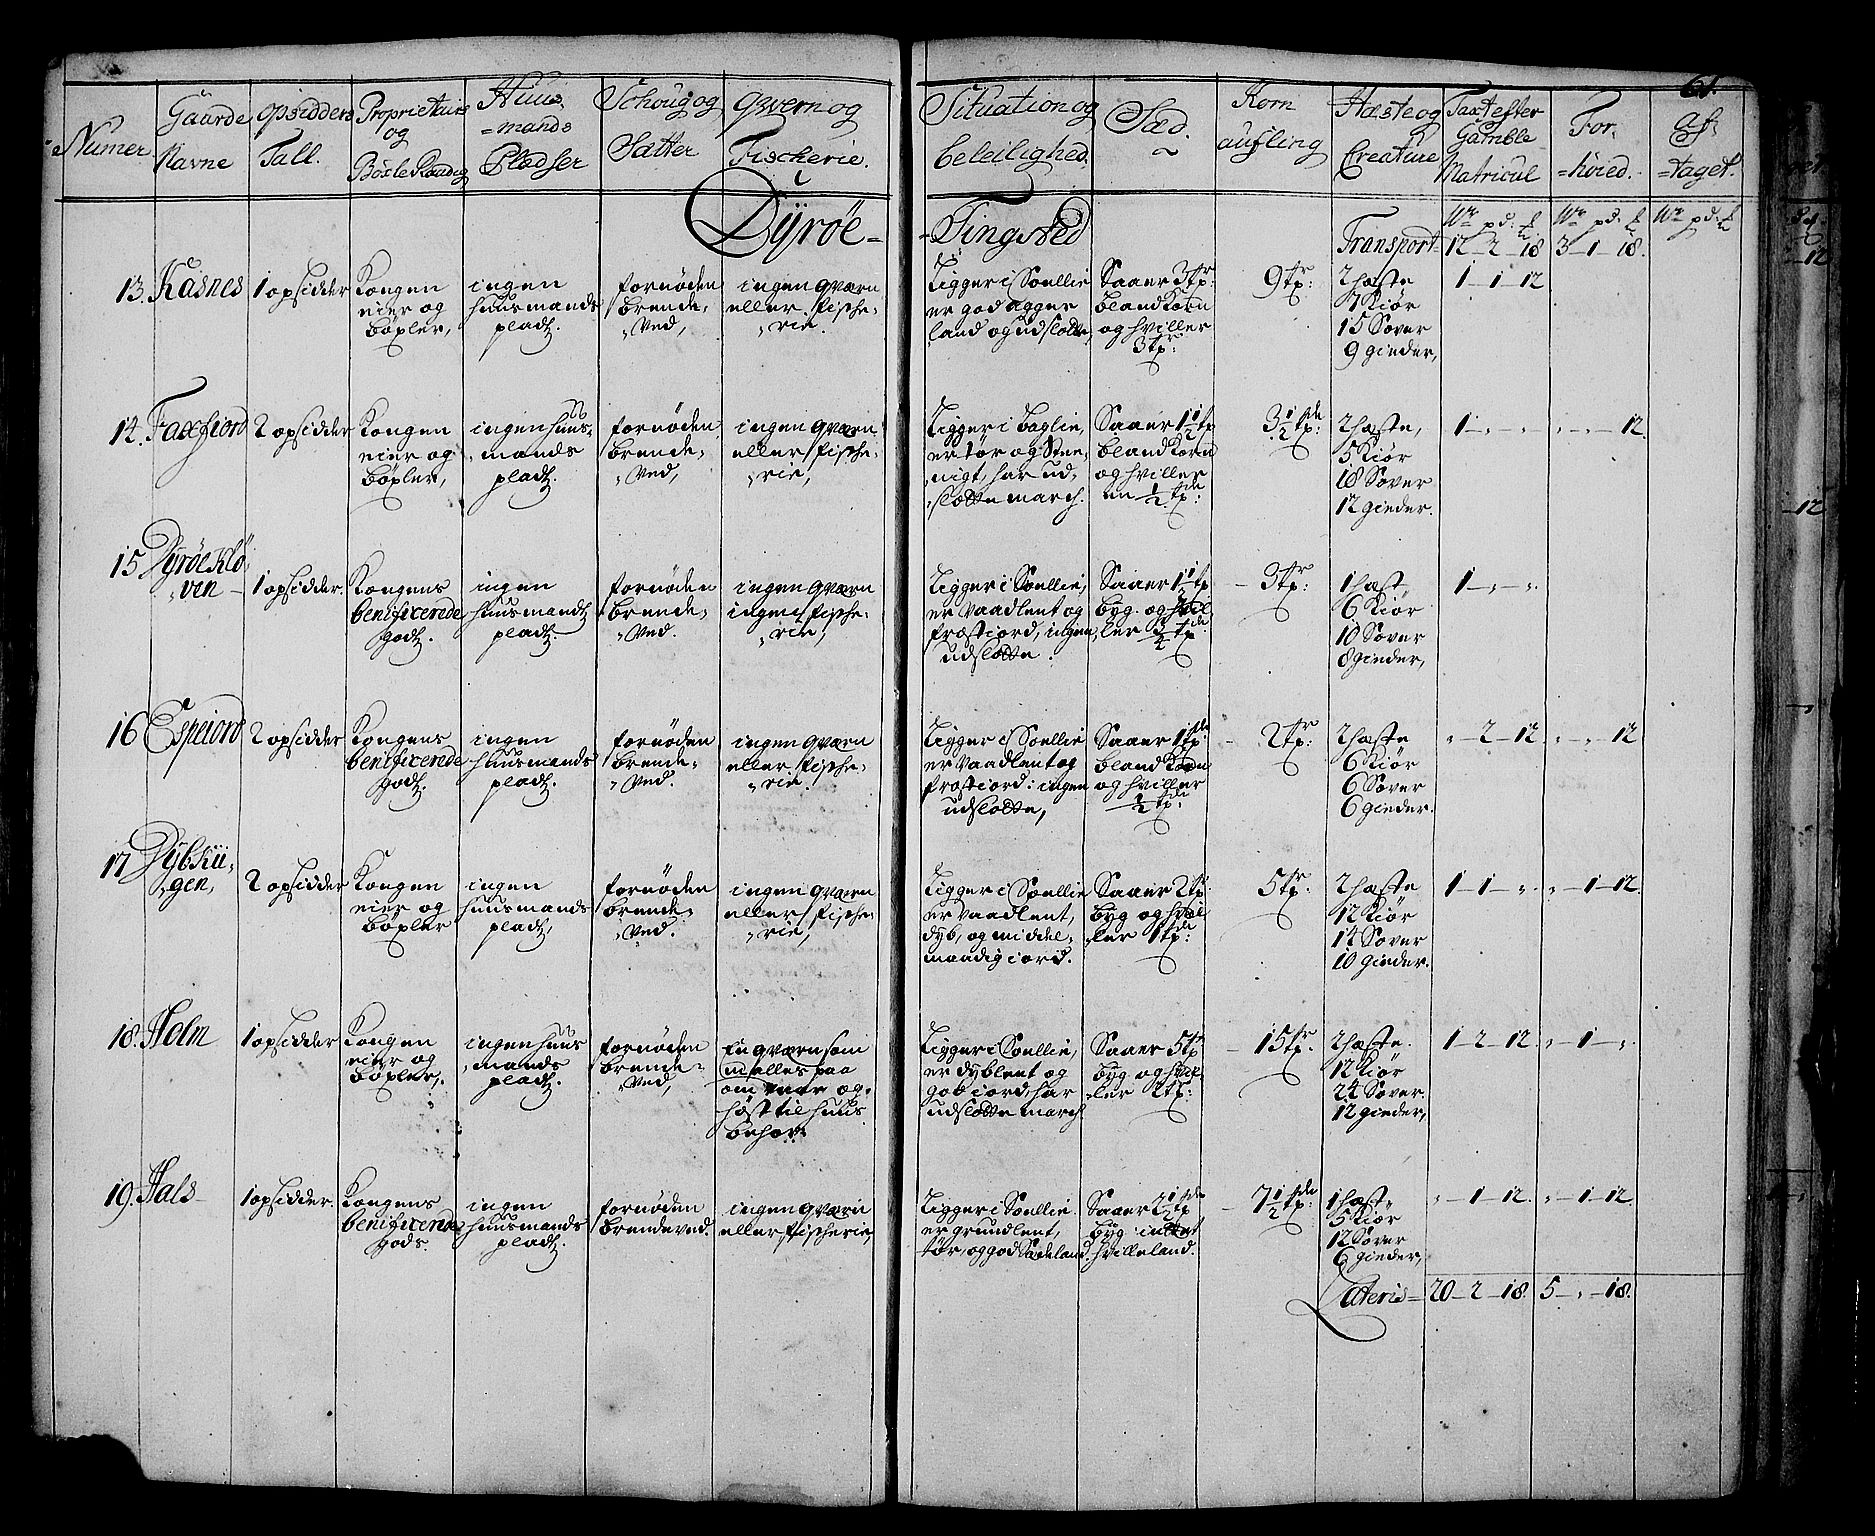 61.
Numer
Gaarde Navne
Opsidders Tall.
Proprietairs og Böxle Raadig
Huus- =mands Pladser
Schoug og Sætter
Qvern og Fischerie.
Situation og beleilighed.
Sæd.
Korn aufling
Hæste og Creature
Taxt efter Gamble Matricul
For- =höied.
Af- =taget.
Dÿröe= =Tingsted
Wr pd: t Wr pd: t Wr pd: t
Transport= 12-2-18 3-1-18.
13. Kasnes
1 opsidder
Kongen eier og böxler,
ingen huusmands pladtz.
fornöden brende- ved,
ingen qværn eller fische- rie.
Ligger i Soellie er god agger land og udslotte,
Saaer 3tr: bland Korn og hviller 3tr:
9tr:
2 hæste 7 Kiör 15 Sover 9 gieder,
1-1-12
14. Faxfiord
2 opsidder
Kongen eier og böxler,
ingen huus- mands pladtz.
fornöden brende- ved,
ingen qværn eller fische- rie,
Ligger i baglie, er tör og Stee- nigt, har ud- slotte march.
Saaer 1 1/2 tr bland Korn og hviller en 1/2 tr:
3 1/2 tr:
2 hæste, 5 Kiör 18 Sover 12 gieder.
1-,-, ,-,-12.
15 Dÿröe Klö- ven
1 opsidder.
Kongens benificerede godtz.
ingen huusmands pladtz.
fornöden brende- ved.
ingen qværn ingen fische- rie,
Ligger i Soellie, er vaadlent og frostiord, ingen udslotte.
Saaer 1 1/2 tr byg. og hvil- ler 3/4 tr:
3tr:
1 hæst 6 Kiör 10 Sover 8 gieder,
1-,-,.
16 Espeiord
2 opsidder
Kongens benificerede godtz.
ingen huusmands pladtz.
fornöden brende- ved.
ingen qværn eller fische- rie.
Ligger i Soellie er vaadlent og frostiord: ingen udslotte,
Saaer 1tr: bland Korn og hviller 1/2 tr:
2tr:
2 hæste 6 Kiör 6 Sover 6 gieder.
,-2-12 ,-,-12
17 Dÿbku- gen,
2 opsidder
Kongen eier og böxler
ingen huusmands pladtz,
fornöden brende- ved.
ingen qværn eller fische- rie,
Ligger i Soellie er vaadlent, dyb, og middel- maadig iord.
Saaer 2tr: byg og hvil- ler 1tr:
5tr:
2 hæste 12 Kiör 14 Sover 10 gieder.
1-1-,. ,-1-12.
18. Holm
1 opsidder
Kongen eier og böxler,
ingen huus mands pladtz.
fornöden brende- ved,
En qværn som malles paa om vaar og höst til huus behov:
Ligger i Soellie, er dyblent og god iord, har udslotte march
Saaer 5tr byg og hvil- ler 2tr:
15tr:
2 hæste. 12 Kiör 24 Sover. 12 gieder,
1-2-12. ,-1-,.
19. Hals
1 opsidder.
Kongens benificerede gods.
ingen huusmands pladtz.
fornöden brendeved.
ingen qværn eller fischerie,
Ligger i Soellie. er grundlent, tör, og god Sædeland.
Saaer 2 1/2 tr byg: intet hvilleland.
7 1/2 tr:
1 hæst, 5 Kiör 12 Sover 6 gieder,
,-1-12. ,-1-12.
Lateris= 20-2-18. 5-,-18.